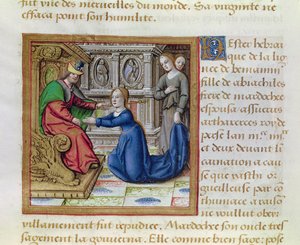 vue des merveilles du monde. Sa virginite ne
effaca point son humilite.
Ester hebrai
que de la li
gnee de beniamin
fille de abiachiles
frere de mardochee
espousa assuerus
artharerses roy de
perse lan
et deux devant li
carnation a cau
se que vasthi or
gueilleuse par co
humace a raiso
ne woullut ober
villainement fut repudiee. Mardochee son oncle tres
sagement la gouverna. Elle comme bien sage: posse